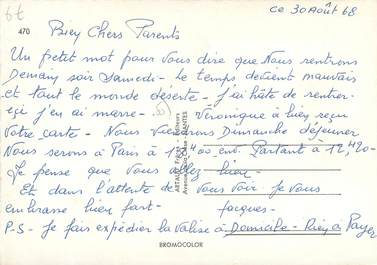 6€
ce 30 Août 68
470
Bien Chers Parents
Un petit mot pour Vous dire que Nous rentrons
Demain soir Samedi - Le temps devient mauvais
et tout le monde déserte - j'ai hâte de rentrer
ici j'en ai marre - Véronique a bien reçu
Votre carte - Nous Viendrons Dimanche déjeuner
Nous serons à Paris à ent. Partant à 12,20 -
Je pense que Vous allez bien -
Et dans l'attente de Vous Voir je Vous
embrasse bien fort - Jacques -
P.S - Je fais expédier la Valise à Domicile - Rien à Payer
ARTAUD Frères - Editeurs
NANTES
BROMOCOLOR